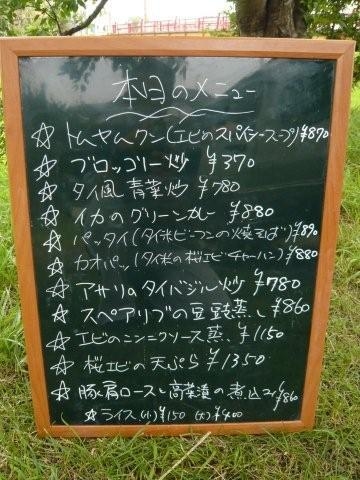 本日のメニュー
☆ トムヤムクン(エビのスパイシースープ)¥870
☆ ブロッコリー炒 ¥370
☆ タイ風 青菜炒 ¥780
☆ イカのグリーンカレー ¥880
☆ パッタイ(タイ米ビーフンの焼そば)¥890
☆ カオパッ(タイ米の桜エビチャーハン)¥880
☆ アサリのタイバジル炒 ¥780
☆ スペアリブの豆豉蒸し ¥860
☆ エビのニンニクソース蒸 ¥1150
☆ 桜エビの天ぷら ¥1350
☆ 豚肩ロースと高菜漬の煮込み ¥860
☆ ライス(小)¥150 (大)¥400